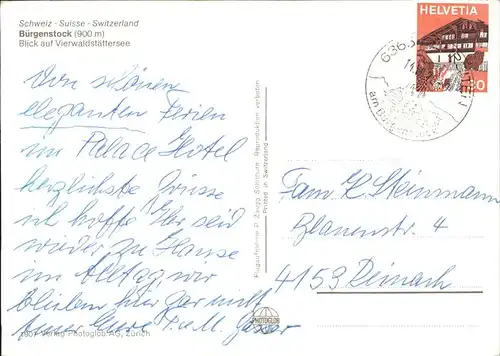 Schweiz - Suisse - Switzerland
Bürgenstock (900 m)
Blick auf Vierwaldstättersee
Von schönen
eleganten Ferien
im Palace Hotel
herzlichste Grüsse
ich hoffe Ihr seid
wieder zu Hause
im Alltag, wir
bleiben hier gar nicht
Eure
Verlag Photoglob AG, Zürich
Plugaufnahme P. Zaugg Solothurn Reproduktion verboten
Printed in Switzerland
PHOTOGLOB
HELVETIA
Fam. K. Steinmann
4
4153 Reinach